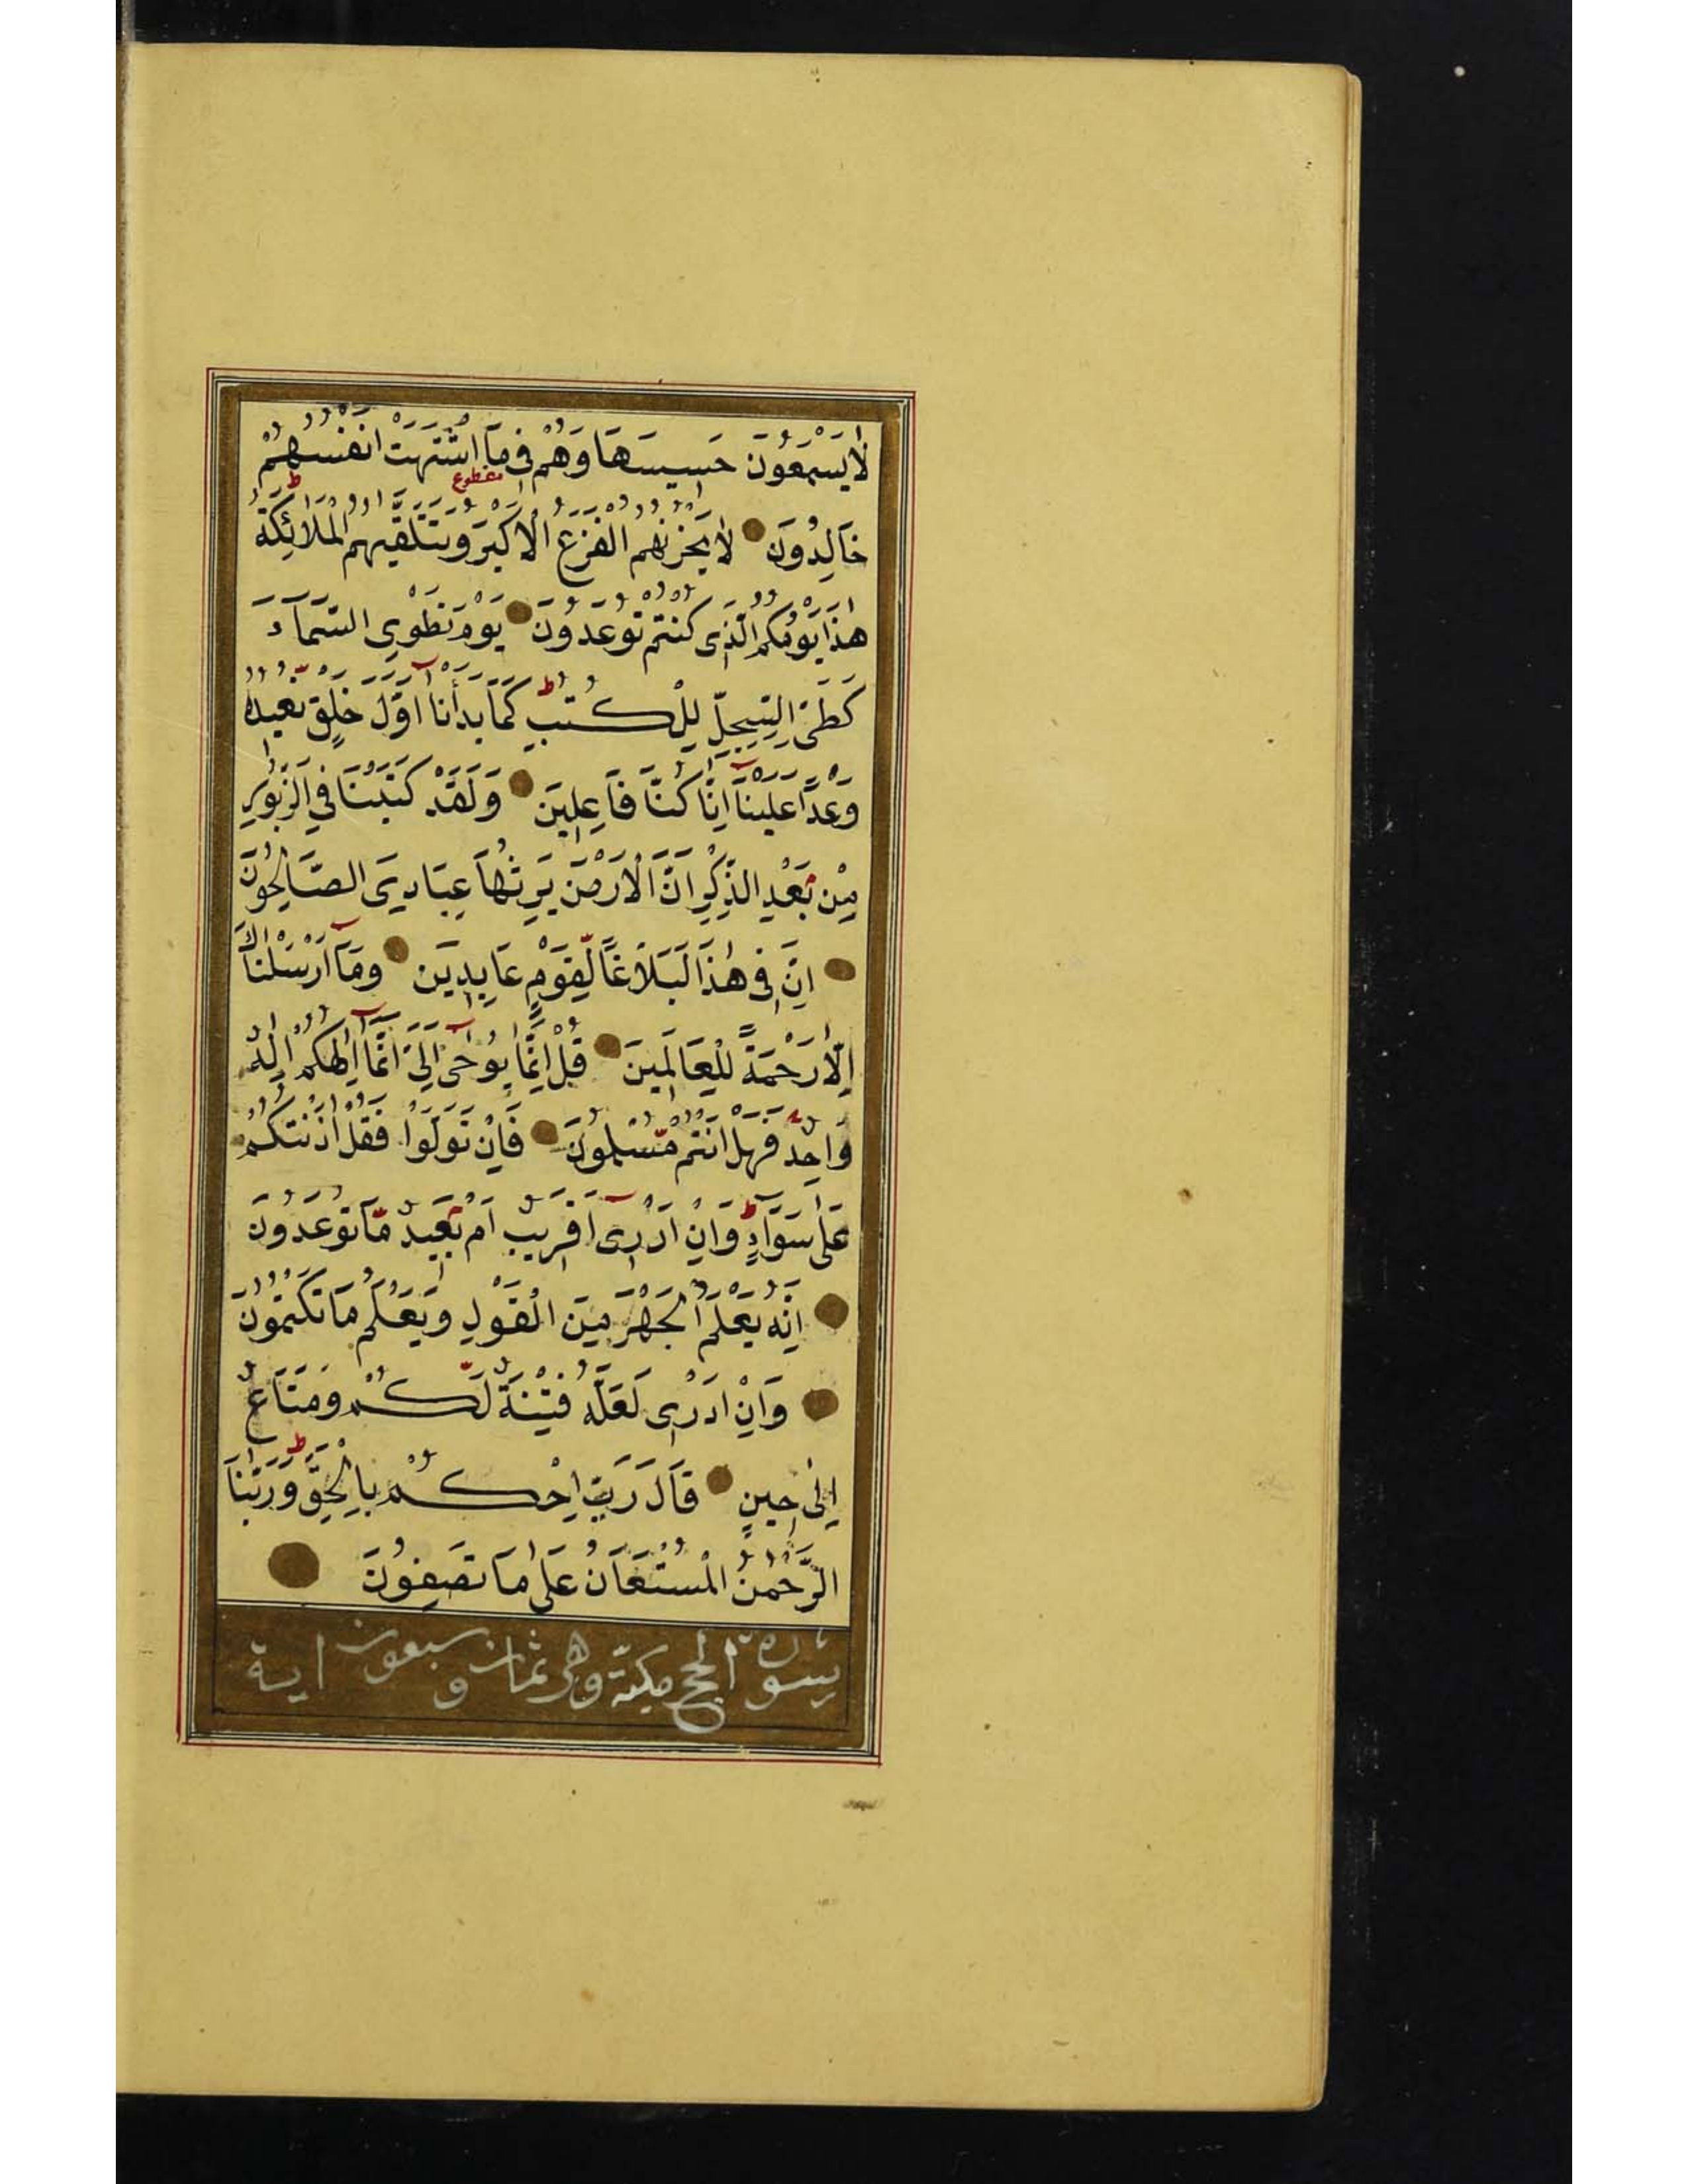 لَا يَسْمَعُونَ حَسِيسَهَا وَهُمْ فِى مَا اشْتَهَتْ اَنْفُسُهُمْ
مقطوع
خَالِدُونَ لَا يَحْزُنُهُمُ الْفَزَعُ الْاَكْبَرُ وَتَتَلَقّٰيهُمُ الْمَلَائِكَةُ ط
هٰذَا يَوْمُكُمُ الَّذِى كُنْتُمْ تُوعَدُونَ يَوْمَ نَطْوِى السَّمَآءَ
كَطَىِّ السِّجِلِّ لِلْكُتُبِ ط كَمَا بَدَأْنَا اَوَّلَ خَلْقٍ نُعِيدُهُ
وَعْدًا عَلَيْنَا اِنَّا كُنَّا فَاعِلِينَ وَلَقَدْ كَتَبْنَا فِي الزَّبُورِ
مِنْ بَعْدِ الذِّكْرِ اَنَّ الْاَرْضَ يَرِثُهَا عِبَادِىَ الصَّالِحُونَ
اِنَّ فِى هٰذَا لَبَلَاغًا لِّقَوْمٍ عَابِدِينَ وَمَآ اَرْسَلْنَاكَ
اِلَّا رَحْمَةً لِلْعَالَمِينَ قُلْ اِنَّمَا يُوحٰٓى اِلَىَّ اَنَّمَآ اِلٰهُكُمْ اِلٰهٌ
وَاحِدٌ فَهَلْ اَنْتُمْ مُّسْلِمُونَ فَاِنْ تَوَلَّوْا فَقُلْ اٰذَنْتُكُمْ
عَلٰى سَوَآءٍ ط وَاِنْ اَدْرِىٓ اَقَرِيبٌ اَمْ بَعِيدٌ مَّا تُوعَدُونَ
اِنَّهُ يَعْلَمُ الْجَهْرَ مِنَ الْقَوْلِ وَيَعْلَمُ مَا تَكْتُمُونَ
وَاِنْ اَدْرِى لَعَلَّهُ فِتْنَةٌ لَّكُمْ وَمَتَاعٌ
اِلٰى حِينٍ قَالَ رَبِّ احْكُمْ بِالْحَقِّ ط وَرَبُّنَا
الرَّحْمٰنُ الْمُسْتَعَانُ عَلٰى مَا تَصِفُونَ
سورة الحج مكية وهى ثمان وسبعون اية